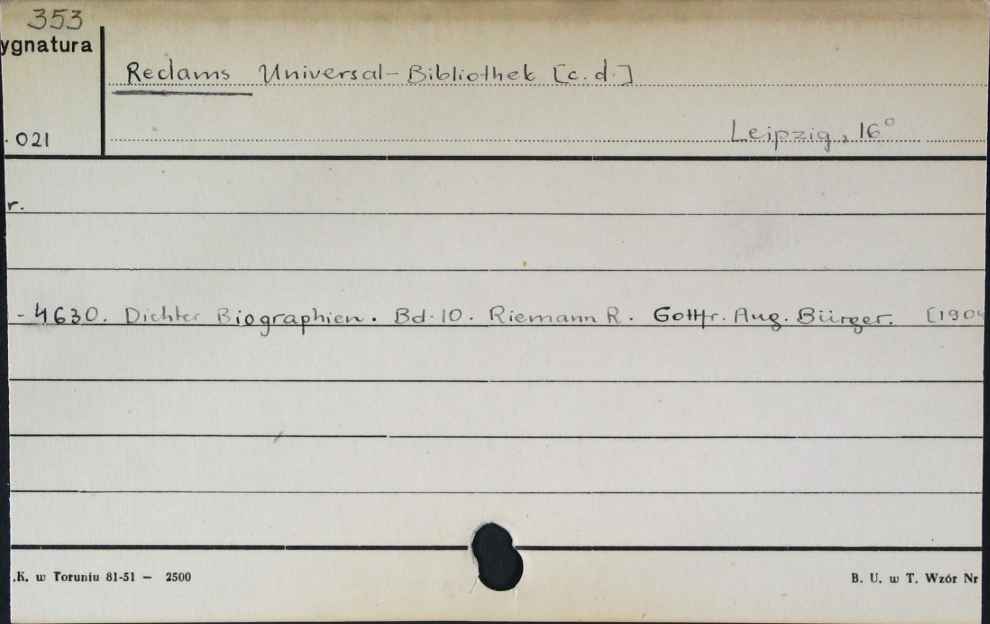 353
ygnatura
Reclams Universal-Bibliothek [c.d.]
. 021
Leipzig, 16°
r.
-4630. Dichter Biographien. Bd. 10. Riemann R. Gottfr. Aug. Bürger. [190
.K. w Toruniu 81-51 — 2500
B. U. w T. Wzór Nr